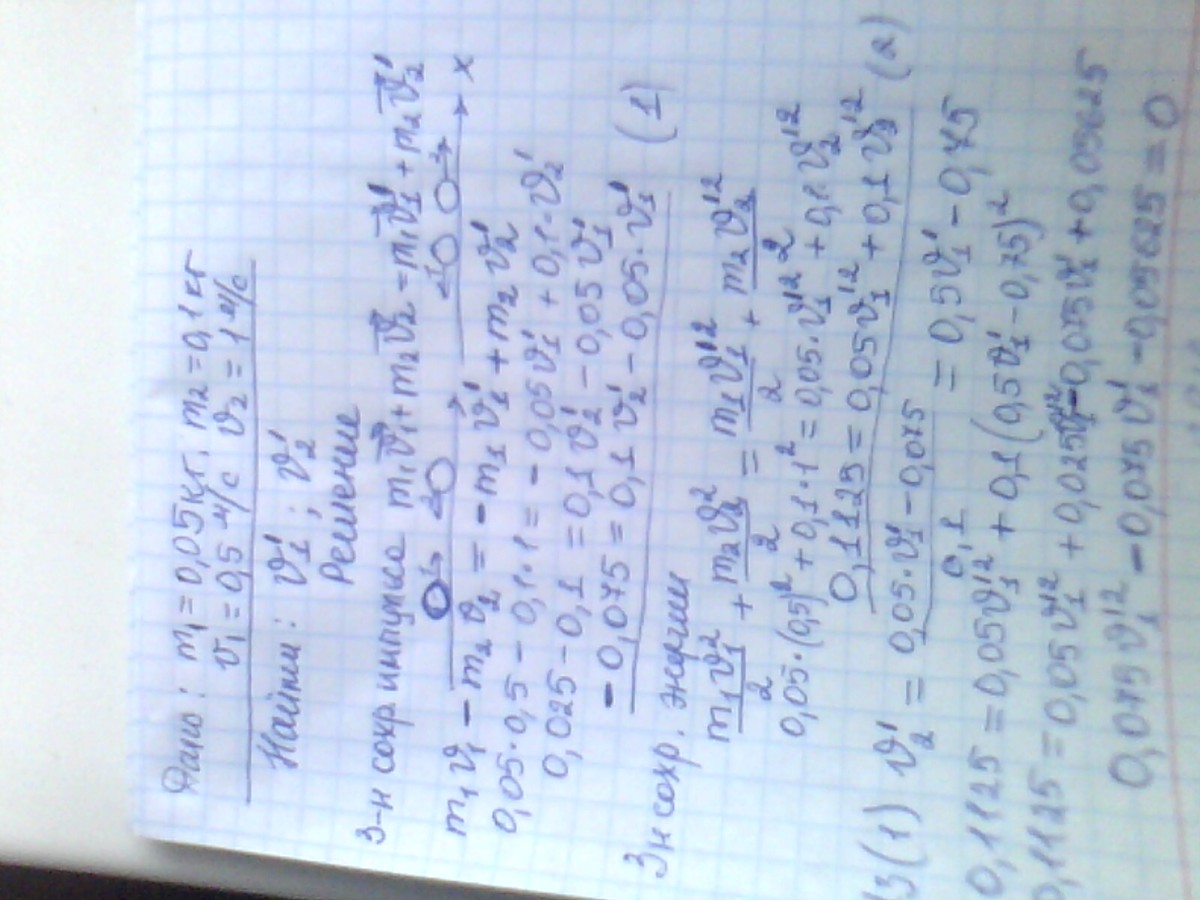 Дано: m₁ = 0,05 кг. m₂ = 0,1 кг
v₁ = 0,5 м/с v₂ = 1 м/с
Найти: v₁'; v₂'
Решение
З-н сохр импульса m₁v⃗₁ + m₂v⃗₂ = m₁v⃗₁' + m₂v⃗₂'
x
m₁v₁ − m₂v₂ = −m₁v₁' + m₂v₂'
0,05·0,5 − 0,1·1 = −0,05v₁' + 0,1·v₂'
0,025 − 0,1 = 0,1v₂' − 0,05v₁'
−0,075 = 0,1v₂' − 0,05·v₁' (1)
Зн сохр. энергии
m₁v₁²/2 + m₂v₂²/2 = m₁v₁'²/2 + m₂v₂'²/2
0,05·(0,5)² + 0,1·1² = 0,05·v₁'² + 0,1·v₂'²
0,1125 = 0,05v₁'² + 0,1v₂'² (2)
Из(1) v₂' = (0,05·v₁' − 0,075)/0,1 = 0,5v₁' − 0,75
0,1125 = 0,05v₁'² + 0,1(0,5v₁' − 0,75)²
0,1125 = 0,05v₁'² + 0,025v₁'² − 0,075v₁' + 0,05625
0,075v₁'² − 0,075v₁' − 0,05625 = 0